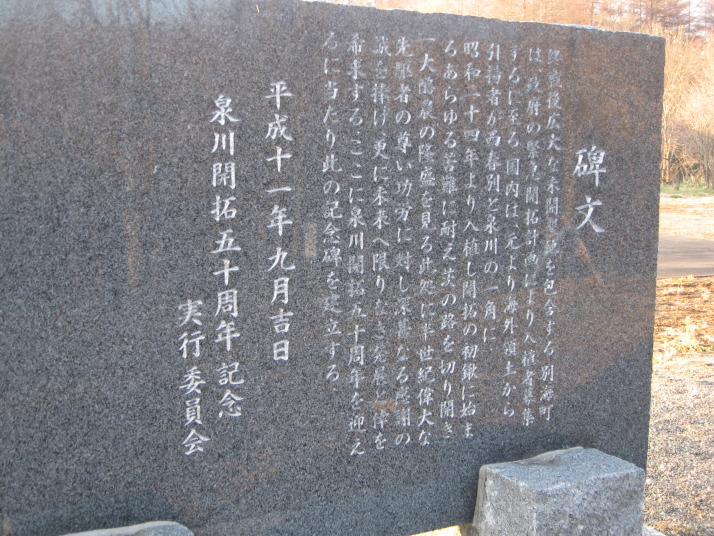 碑文
終戦後広大な未開墾地を包含する別海町
は、政府の緊急開拓計画により入植者募集
するに至る。国内は、元より海外領土から
引揚者が西春別と泉川の一角に
昭和二十四年より入植し開拓の初鍬に始ま
るあらゆる苦難に耐え茨の路を切り開き
一大酪農の隆盛を見る此処に半世紀偉大な
先駆者の尊い功労に対し深甚なる感謝の
誠を捧げ、更に未来へ限りなき発展に倖を
希求する、ここに泉川開拓五十周年を迎え
るに当たり此の記念碑を建立する。
平成十一年九月吉日
泉川開拓五十周年記念
実行委員会